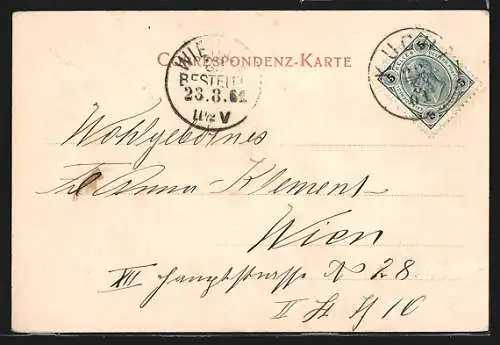 CORRESPONDENZ-KARTE
WIEN
BESTELLT
23.8.
11½ V
Wohlgebornes
Frl Anna Klement
Wien
XII Hauptstrasse No 28
II St